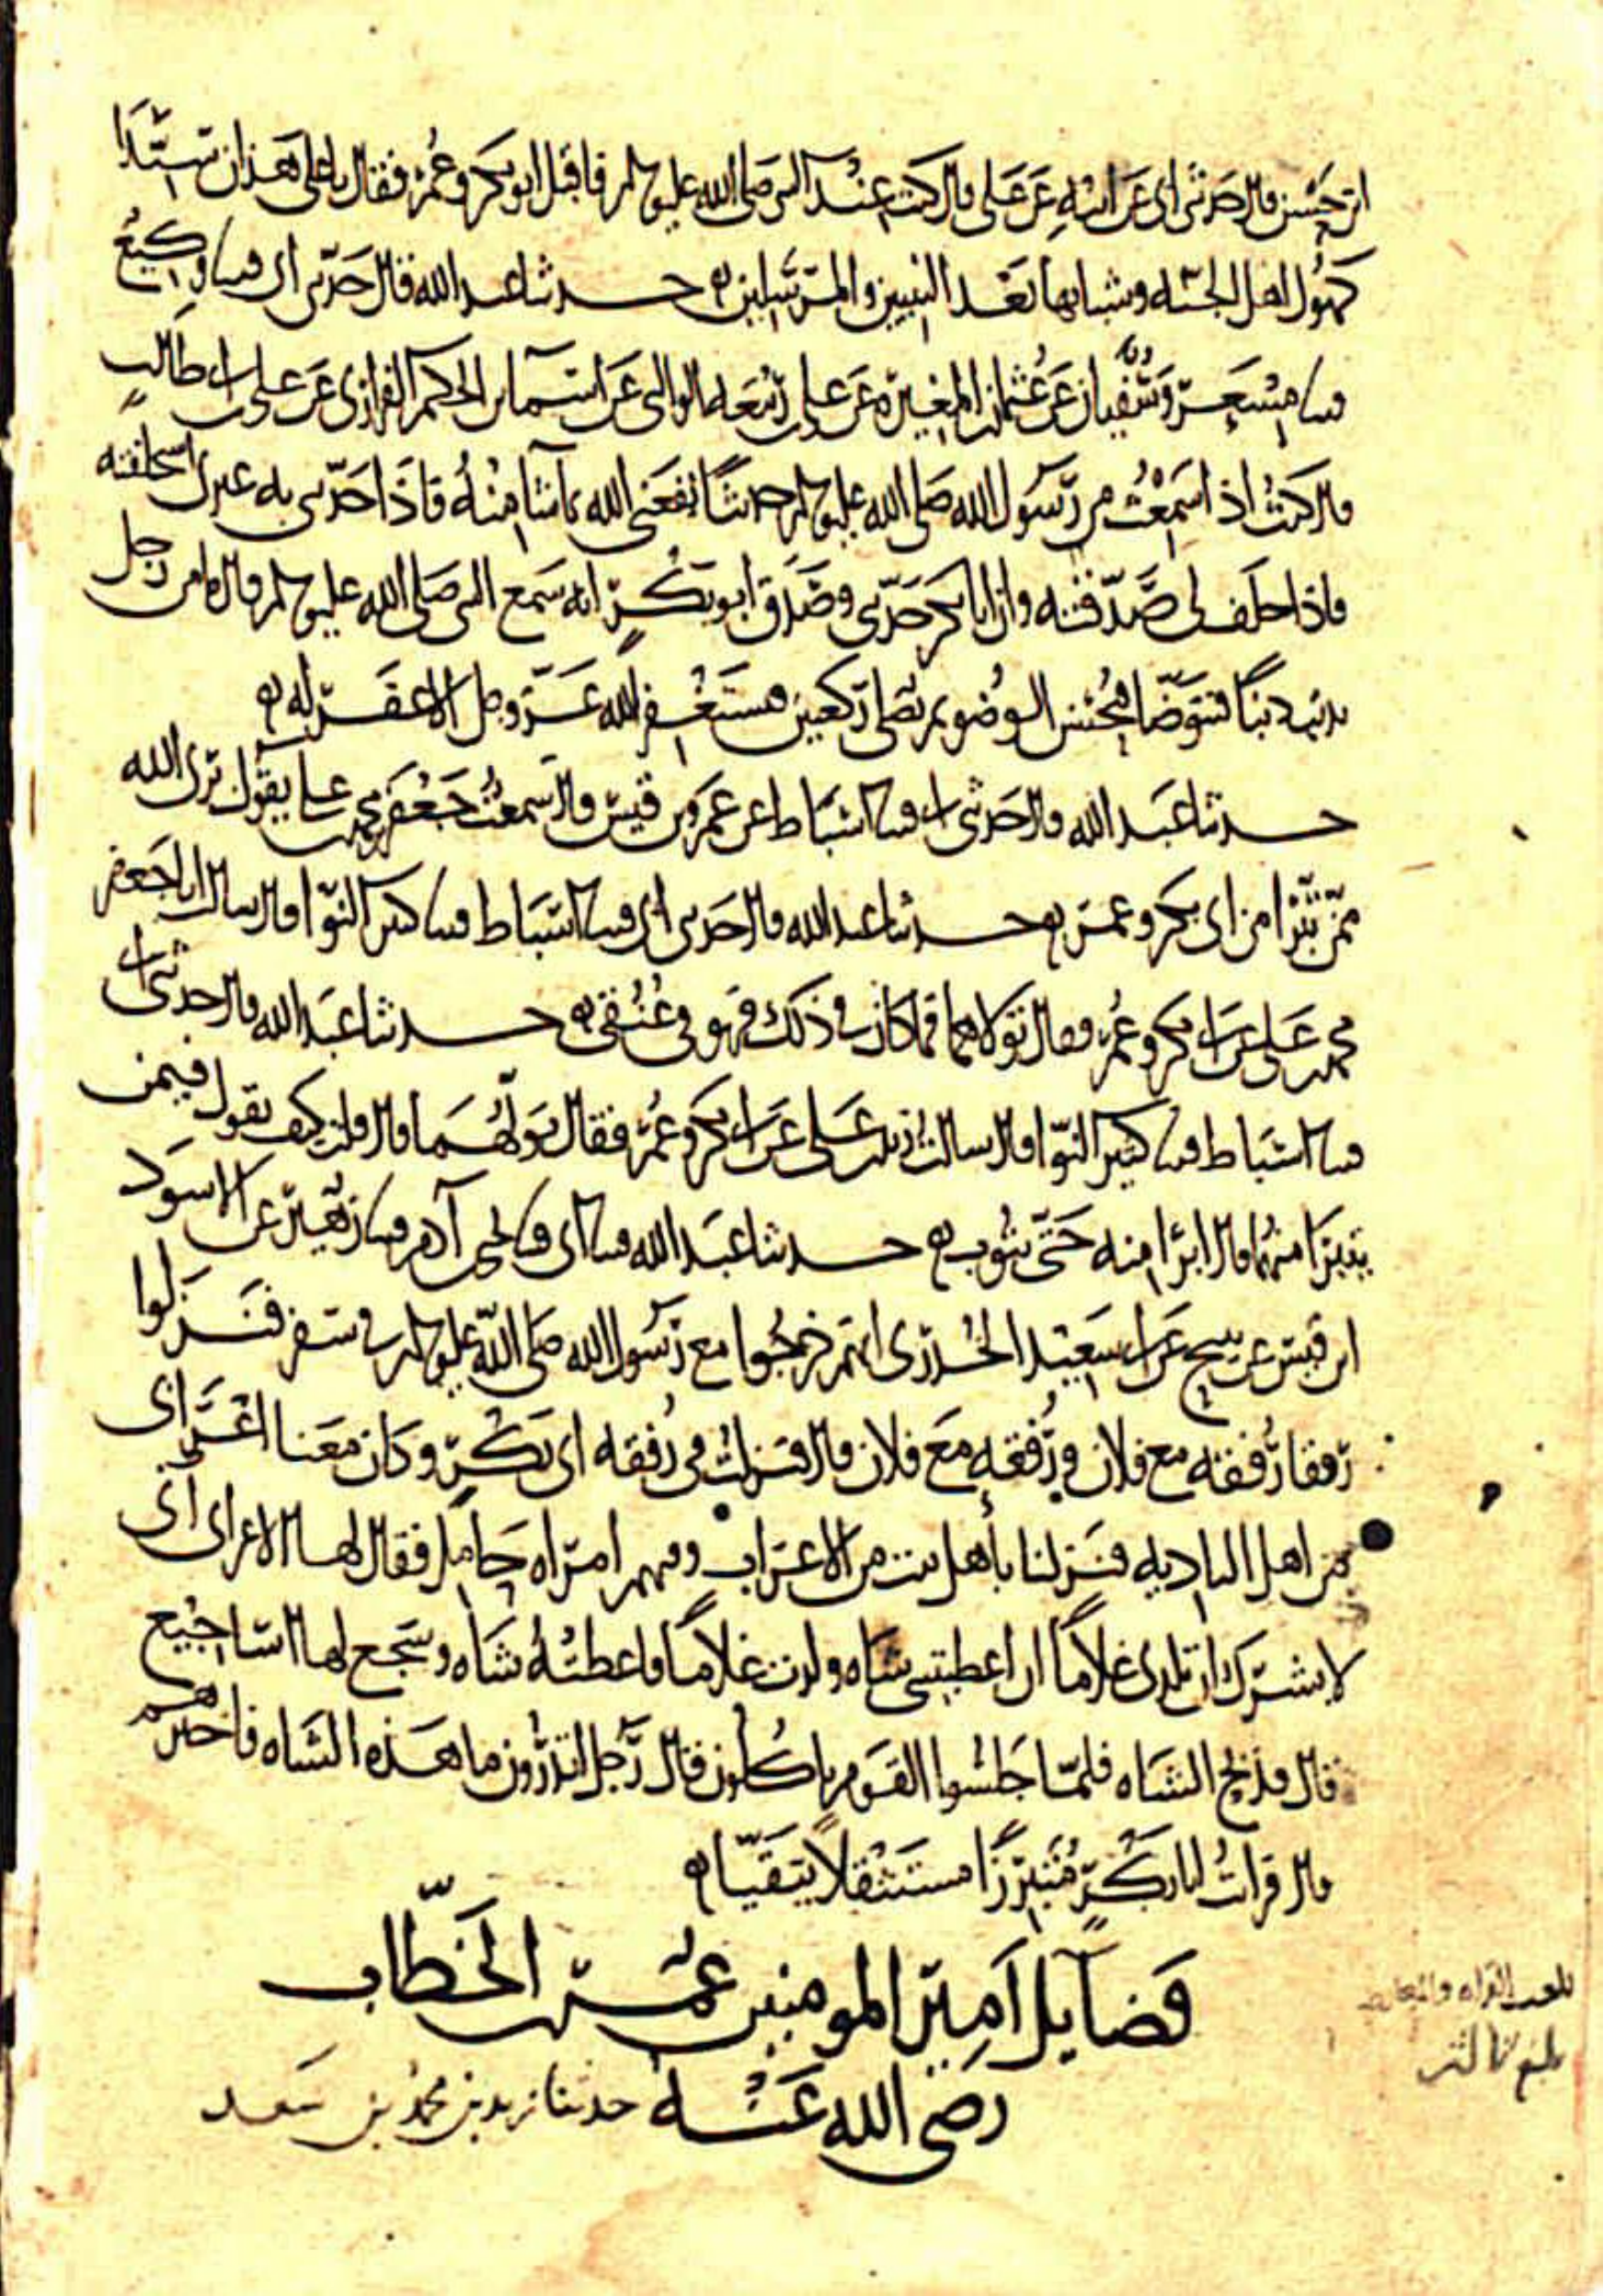 ابن حسن قال حدثنى ابى عن ابيه عن على قال كنت عند النبى صلى الله عليه وسلم فاقبل ابو بكر وعمر فقال يا على هذان سيدا
كهول اهل الجنه وشبابها بعد النبيين والمرسلين حدثنا عبد الله قال حدثنى ابى قثنا وكيع
قثنا مسعر وسفيان عن عثمان بن المغيرة عن على بن ربيعه الوالبى عن اسما بن الحكم الفزارى عن على بن ابى طالب
قال كنت اذا سمعت من رسول الله صلى الله عليه وسلم حديثا نفعنى الله بما شا منه فاذا حدثنى به غيرى استحلفته
فاذا حلف لى صدقته وان ابا بكر حدثنى وصدق ابو بكر انه سمع النبى صلى الله عليه وسلم قال ما من رجل
يذنب ذنبا فيتوضا فيحسن الوضو ثم يصلى ركعتين فيستغفر الله عز وجل الا غفر له
حدثنا عبد الله قال حدثنى ابى قثنا اسباط عن عمرو بن قيس قال سمعت جعفر بن محمد يقول برى الله
ممن تبرا من ابى بكر وعمر حدثنا عبد الله قال حدثنى ابى قثنا اسباط قثنا كثير النوا قال سالت ابا جعفر
محمد بن على عن ابى بكر وعمر فقال تولاهما فما كان فى ذلك فهو فى عنقى حدثنا عبد الله قال حدثنى ابى
قثنا اسباط قثنا كثير النوا قال سالت زيد بن على عن ابى بكر وعمر فقال تولهما قال قلت كيف تقول فيمن
يتبرا منهما قال ابرا منه حتى يتوب حدثنا عبد الله قثنا ابى قثنا يحيى بن آدم قثنا زهير عن الاسود
ابن قيس عن نبيح عن ابى سعيد الخدرى انهم خرجوا مع رسول الله صلى الله عليه وسلم فى سفر فنزلوا
رفقا رفقه مع فلان ورفقه مع فلان قال فنزلت فى رفقه ابى بكر وكان معنا اعرابى
من اهل الباديه فنزلنا باهل بيت من الاعراب وفيهم امراه حامل فقال لها الاعرابى
لا يسرك ان تلدى غلاما ان اعطيتنى شاه ولدت غلاما فاعطته شاه وسجع لها اساجيع
قال فذبح الشاه فلما جلسوا القوم ياكلون قال رجل اتدرون ما هذه الشاه فاخبرهم
قال فرات ابا بكر متبرزا مستنثلا يتقيا
فضايل امير المومنين عمر بن الخطاب
رضى الله عنه حدثنا زيد بن محمد بن سعد
بلغت القراه والمعارضه